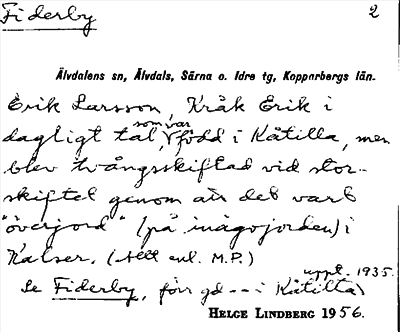 Fiderby
2
Älvdalens sn, Älvdals, Särna o. Idre tg, Kopparbergs län.
Erik Larsson, Kråk Erik i
dagligt tal, som var född i Kåtilla, men
blev tvångsskiftad vid stor-
skiftet genom att det varb
"överjord" (på inägojorden) i
Kalser. (Allt enl. M.P.)
uppt. 1935.
Se Fiderby, förr gd -- i Kåtilla
HELGE LINDBERG 1956.